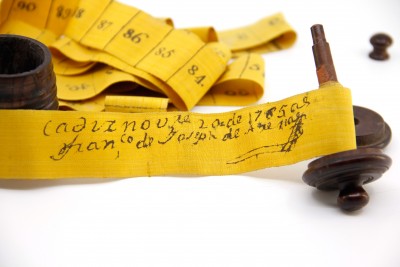 90
89
88
87
86
85
84
Cadiz nov.re 20 de 1785 as
fran.co de Joseph de